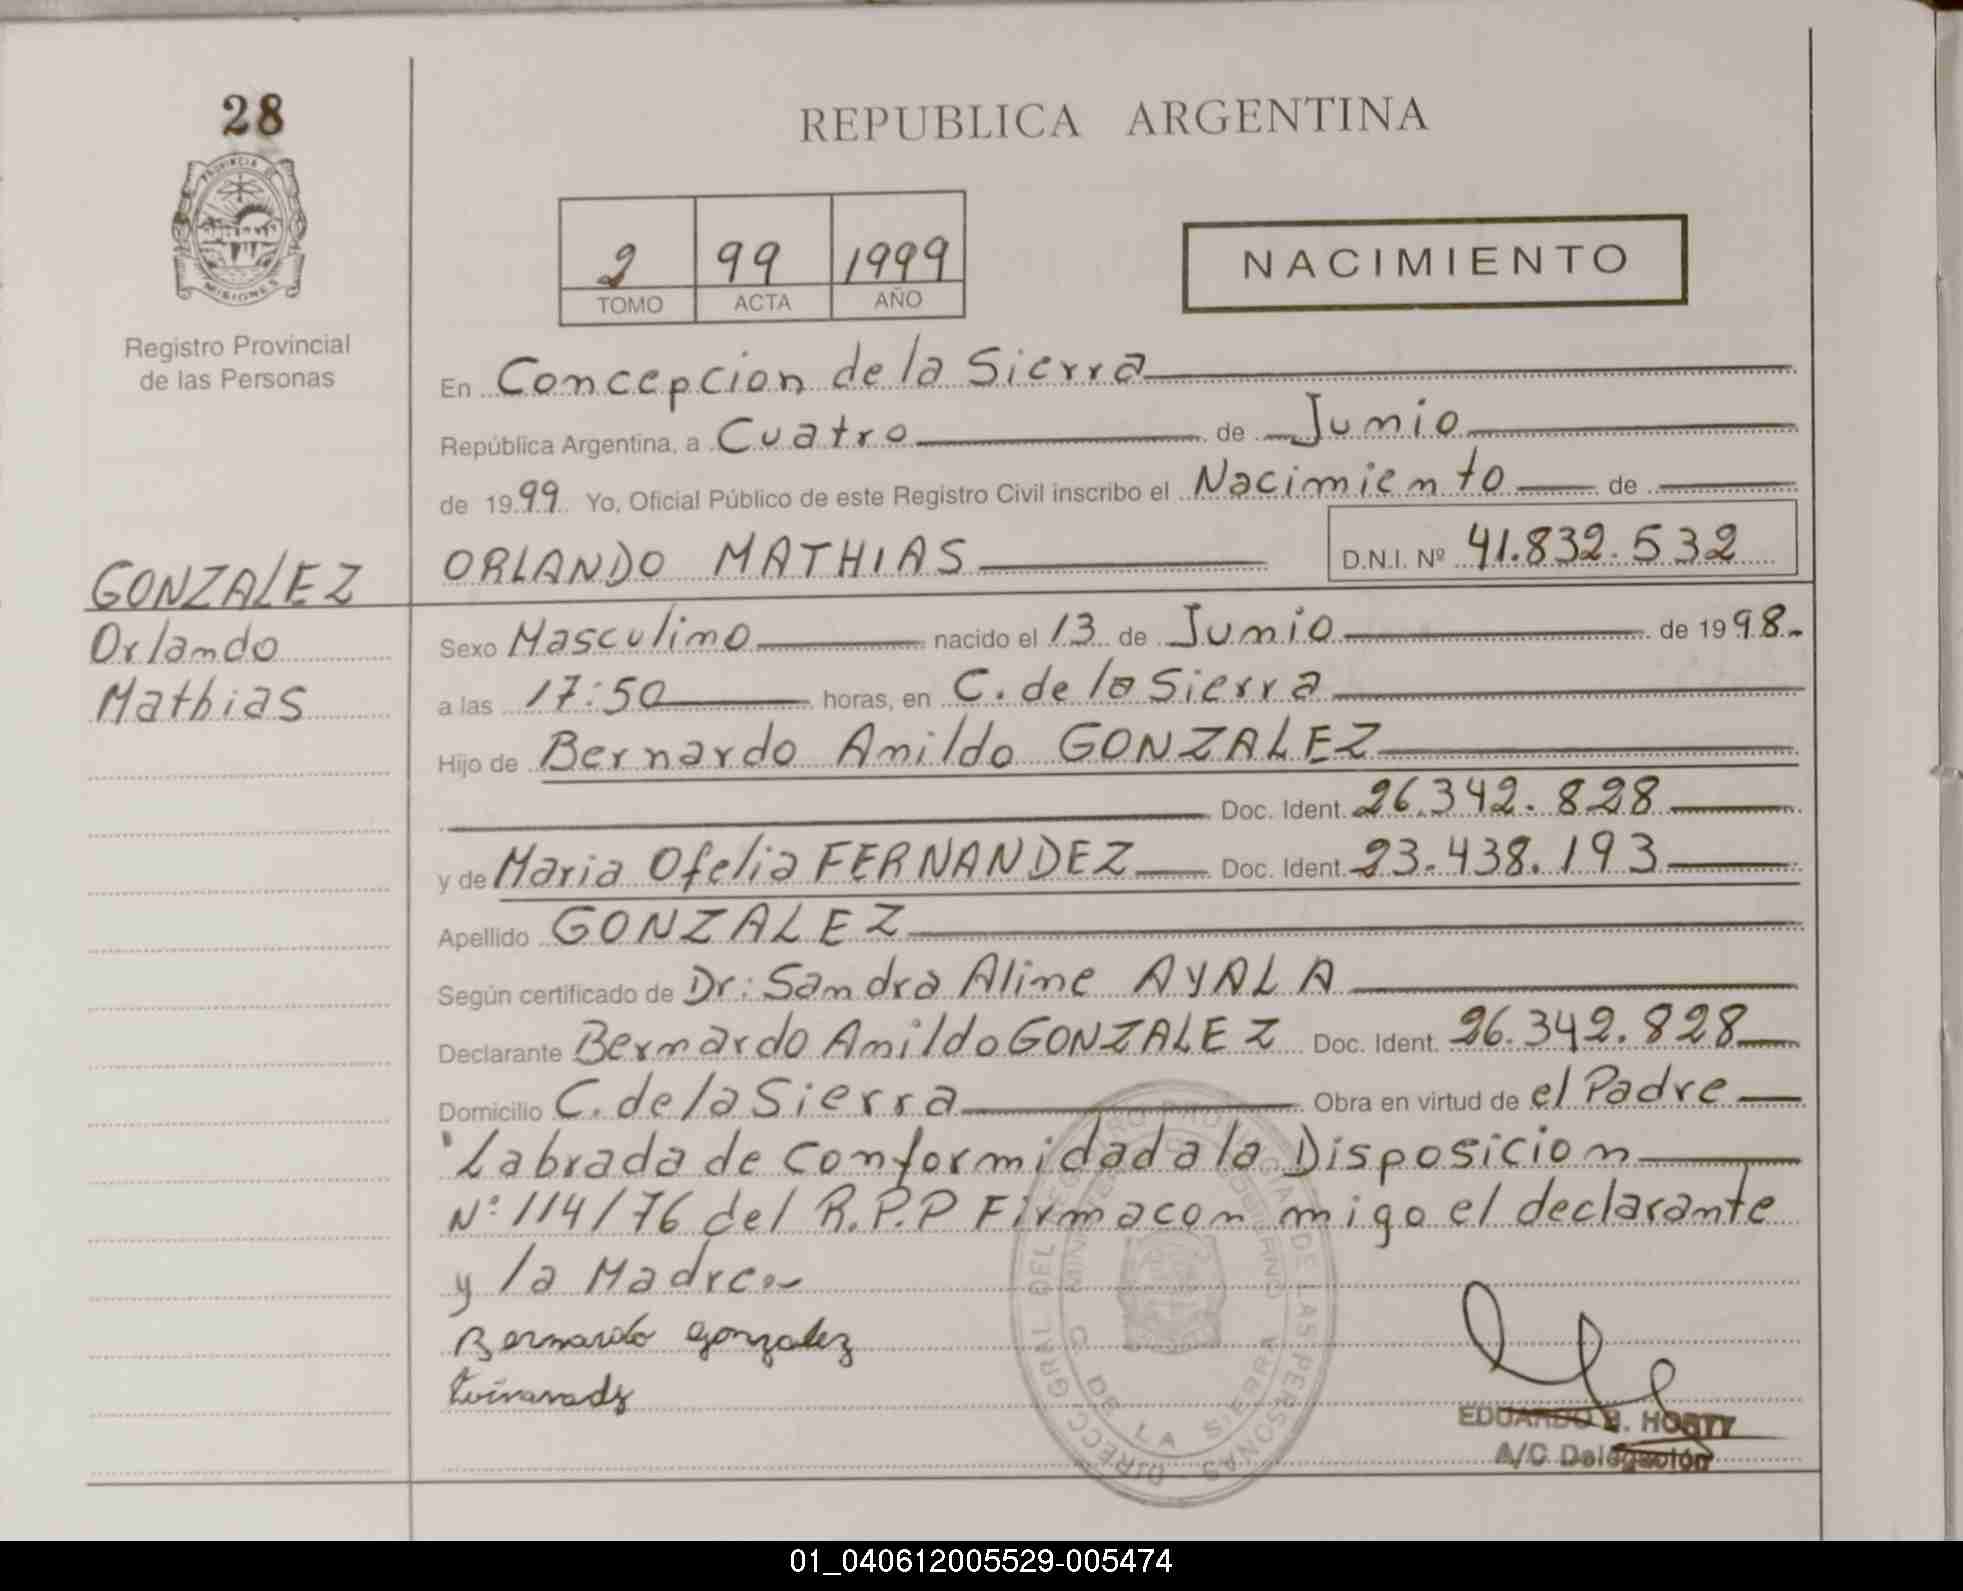 28
PROVINCIA DE
MISIONES
Registro Provincial
de las Personas
GONZALEZ
Orlando
Mathias
REPUBLICA ARGENTINA
2 99 1999
TOMO ACTA AÑO
NACIMIENTO
En Concepcion de la Sierra
República Argentina, a Cuatro de Junio
de 1999 Yo, Oficial Público de este Registro Civil inscribo el Nacimiento de
ORLANDO MATHIAS D.N.I. Nº 41.832.532
Sexo Masculino nacido el 13 de Junio de 1998.-
a las 17:50 horas, en C. de la Sierra
Hijo de Bernardo Anildo GONZALEZ
Doc. Ident. 26.342.828
y de Maria Ofelia FERNANDEZ Doc. Ident. 23.438.193
Apellido GONZALEZ
Según certificado de Dr: Sandra Aline AYALA
Declarante Bernardo Anildo GONZALEZ Doc. Ident. 26.342.828
Domicilio C. de la Sierra Obra en virtud de el Padre
Labrada de Conformidad a la Disposicion
Nº 114/76 del R.P.P Firma con migo el declarante
y la Madre.-
Bernardo gonzalez
EDUARDO R. HOSTY
A/C Delegación
C. DE LA SIERRA
01_040612005529-005474